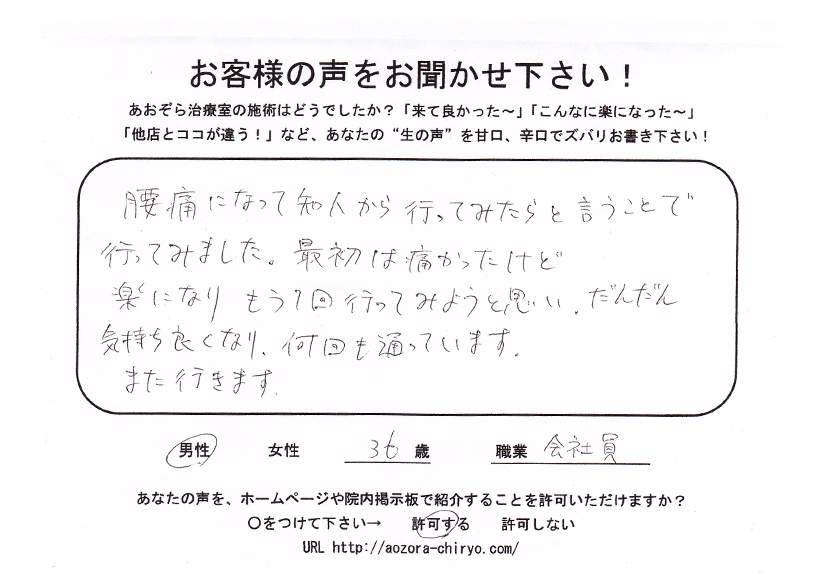 お客様の声をお聞かせ下さい！
あおぞら治療室の施術はどうでしたか？「来て良かった～」「こんなに楽になった～」
「他店とココが違う！」など、あなたの“生の声”を甘口、辛口でズバリお書き下さい！
腰痛になって知人から行ってみたらと言うことで
行ってみました。最初は痛かったけど
楽になり もう1回行ってみようと思い、だんだん
気持ち良くなり、何回も通っています。
また行きます。
男性 女性 36 歳 職業 会社員
あなたの声を、ホームページや院内掲示板で紹介することを許可いただけますか？
〇をつけて下さい→ 許可する 許可しない
URL http://aozora-chiryo.com/